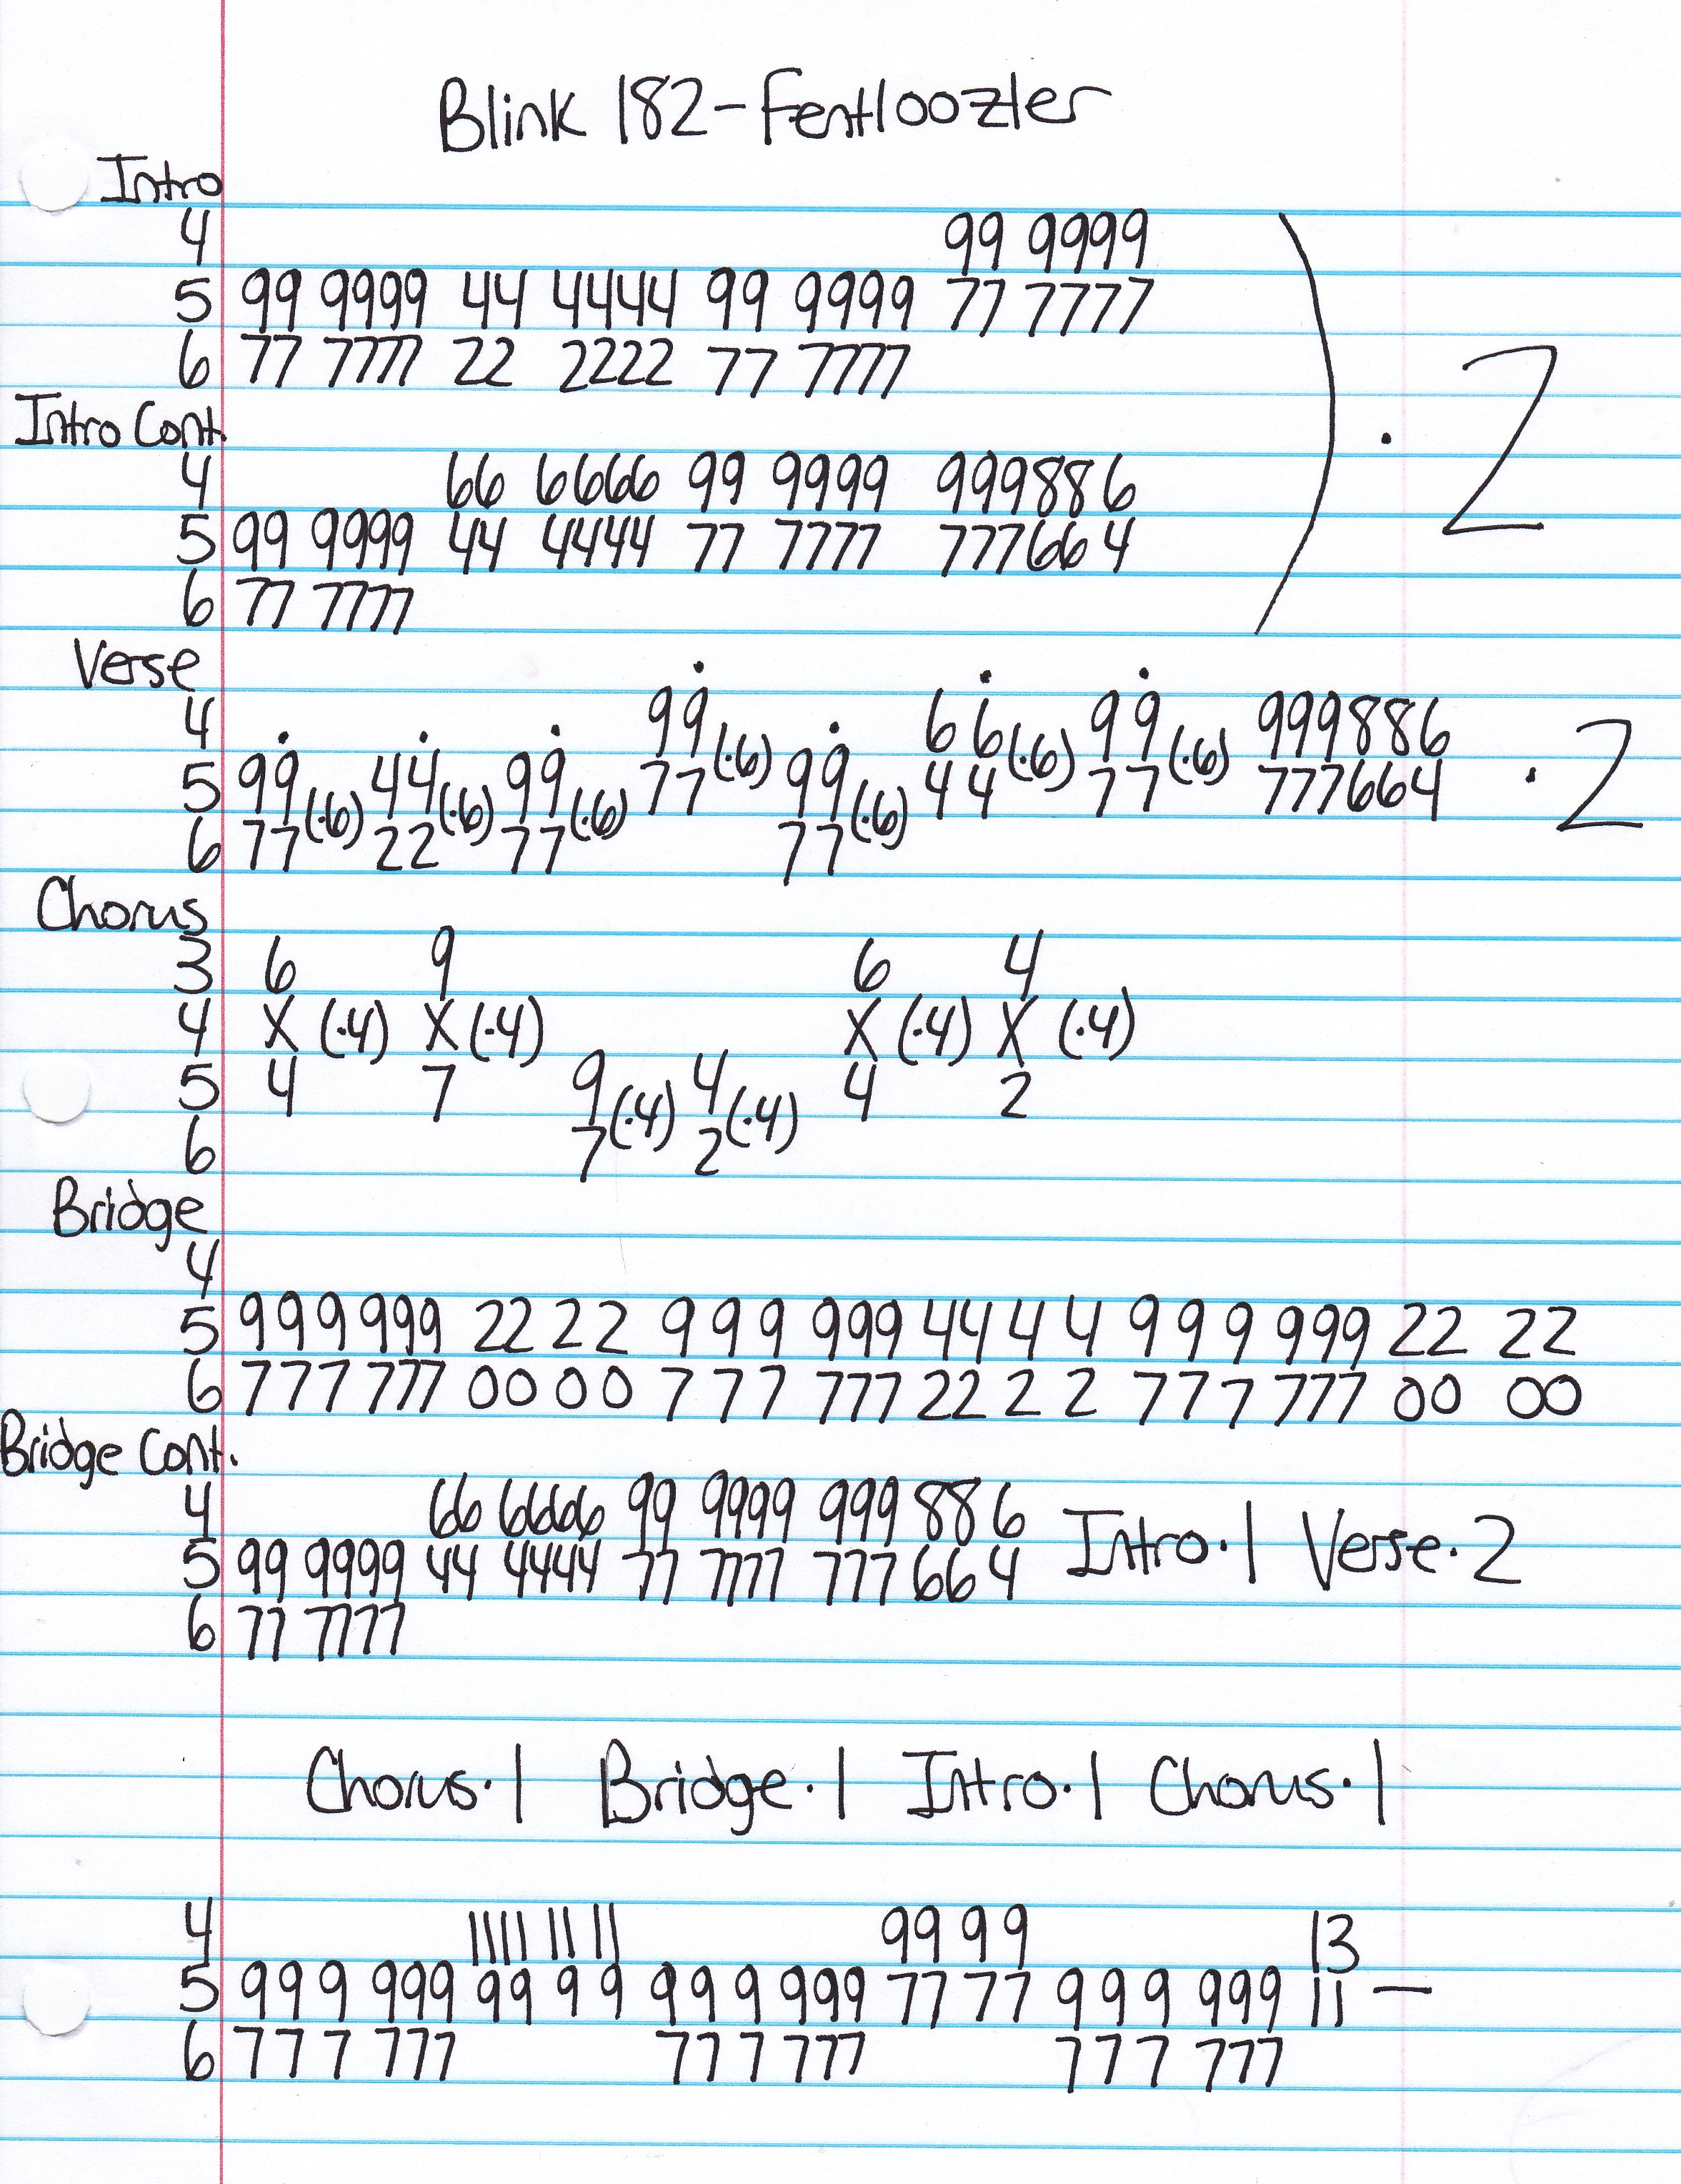 Blink 182 - Fentloozler
Intro
4 99 9999
5 99 9999 44 4444 99 9999 77 7777
6 77 7777 22 2222 77 7777
) · 2
Intro Cont.
4 66 6666 99 9999 999886
5 99 9999 44 4444 77 7777 777664
6 77 7777
Verse
4 99(·6) 66(·6) 99(·6) 999886
5 99(·6) 44(·6) 99(·6) 77 99(·6) 44 77 777664 · 2
6 77 22 77 77
Chorus
3 6 9 6 4
4 X (·4) X (·4) X (·4) X (·4)
5 4 7 9(·4) 4(·4) 4 2
6 7 2
Bridge
4
5 999 999 22 22 999 999 44 4 4 999 999 22 22
6 777 777 00 00 777 777 22 2 2 777 777 00 00
Bridge Cont.
4 66 6666 99 9999 999 886
5 99 9999 44 4444 77 7777 777 664 Intro·1 Verse·2
6 77 7777
Chorus·1 Bridge·1 Intro·1 Chorus·1
4 1111 11 11 99 99 13
5 999 999 99 99 999 999 77 77 999 999 11 —
6 777 777 777 777 777 777